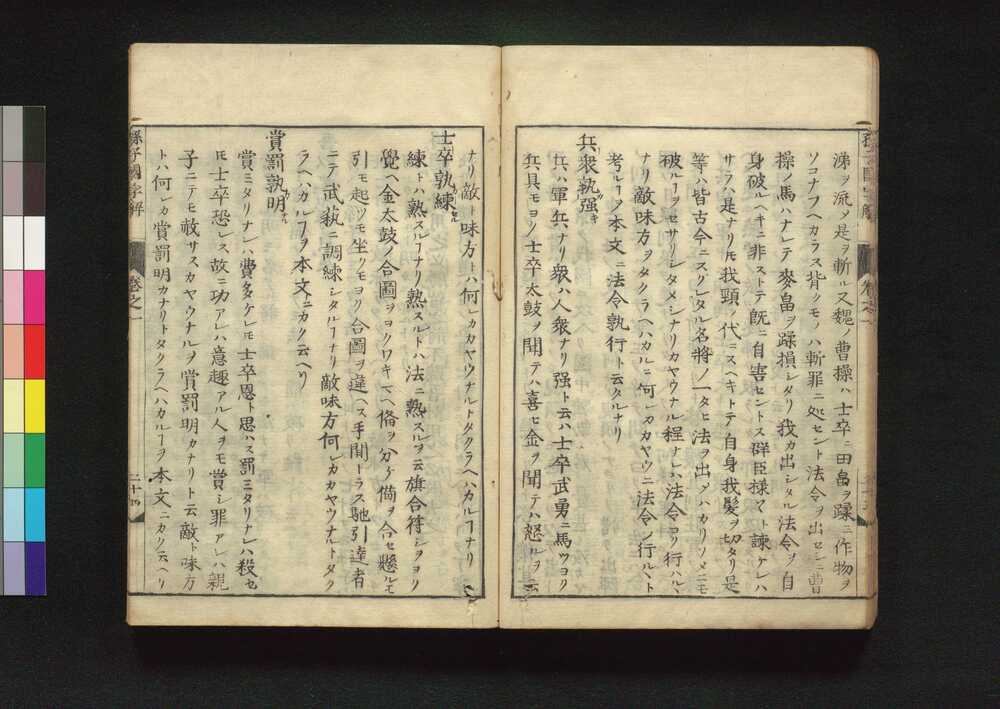 涕ヲ流メ是ヲ斬ル又魏ノ曹操ハ士卒ニ田畠ヲ蹂ミ作物ヲ
ソコナフヘカラス背クモノハ斬罪ニ処セント法令ヲ出セシニ曹
操ノ馬ハナレテ麥畠ヲ蹂損シタリ我カ出シタル法令ヲ自
身破ルヘキニ非ストテ既ニ自害セントス群臣様々ト諫ケレハ
サラハ是ナリ𪜈我頭ノ代ニスヘキトテ自身我髪ヲ切タリ是
等ハ皆古今ニスクレタル名将ノ一タヒ法ヲ出タハカリソメニモ
破ルヿヲセサリシタメシナリカヤウナル程ナレハ法令ヨク行ハル
ナリ敵味方ヲタクラヘハカルニ何レカカヤウニ法令ノ行ルヽト
考ルヿヲ本文ニ法令孰行ト云タルナリ
兵衆孰强キ
兵ハ軍兵ナリ衆ハ人衆ナリ强ト云ハ士卒武勇ニ馬ツヨク
兵具モヨク士卒太鼓ヲ聞テハ喜ヒ金ヲ聞テハ怒ルヲ云
ナリ敵ト味方トハ何レカカヤウナルトタクラヘハカルヿナリ
士卒孰練
練トハ熟スルヿナリ熟スルトハ法ニ熟スルヲ云旗合符シヲヨク
覺ヘ金太鼓ノ合圖ヲヨクワキマヘ脩ヲ分ケ備ヲ合セ懸ルモ
引モ起ツモ坐クモヨク合圖ヲ違ヘス手間トラス馳引達者
ニテ武藝ニ調練シタルヿナリ敵味方何レカカヤウナルトタク
ラヘハカルヿヲ本文ニカク云ヘリ
賞罰孰明カナル
賞ミタリナレハ費多ケレ𪜈士卒恩ト思ハス罰ミタリナレハ殺セ
𪜈士卒恐レス故ニ功アレハ意趣アル人ヲモ賞シ罪アレハ親
子ニテモ赦サスカヤウナルヲ賞罰明カナリト云敵ト味方
トハ何レカ賞罰明カナリトタクラヘハカルヿヲ本文ニカク云ヘリ
孫子國字解
卷之一
二十四